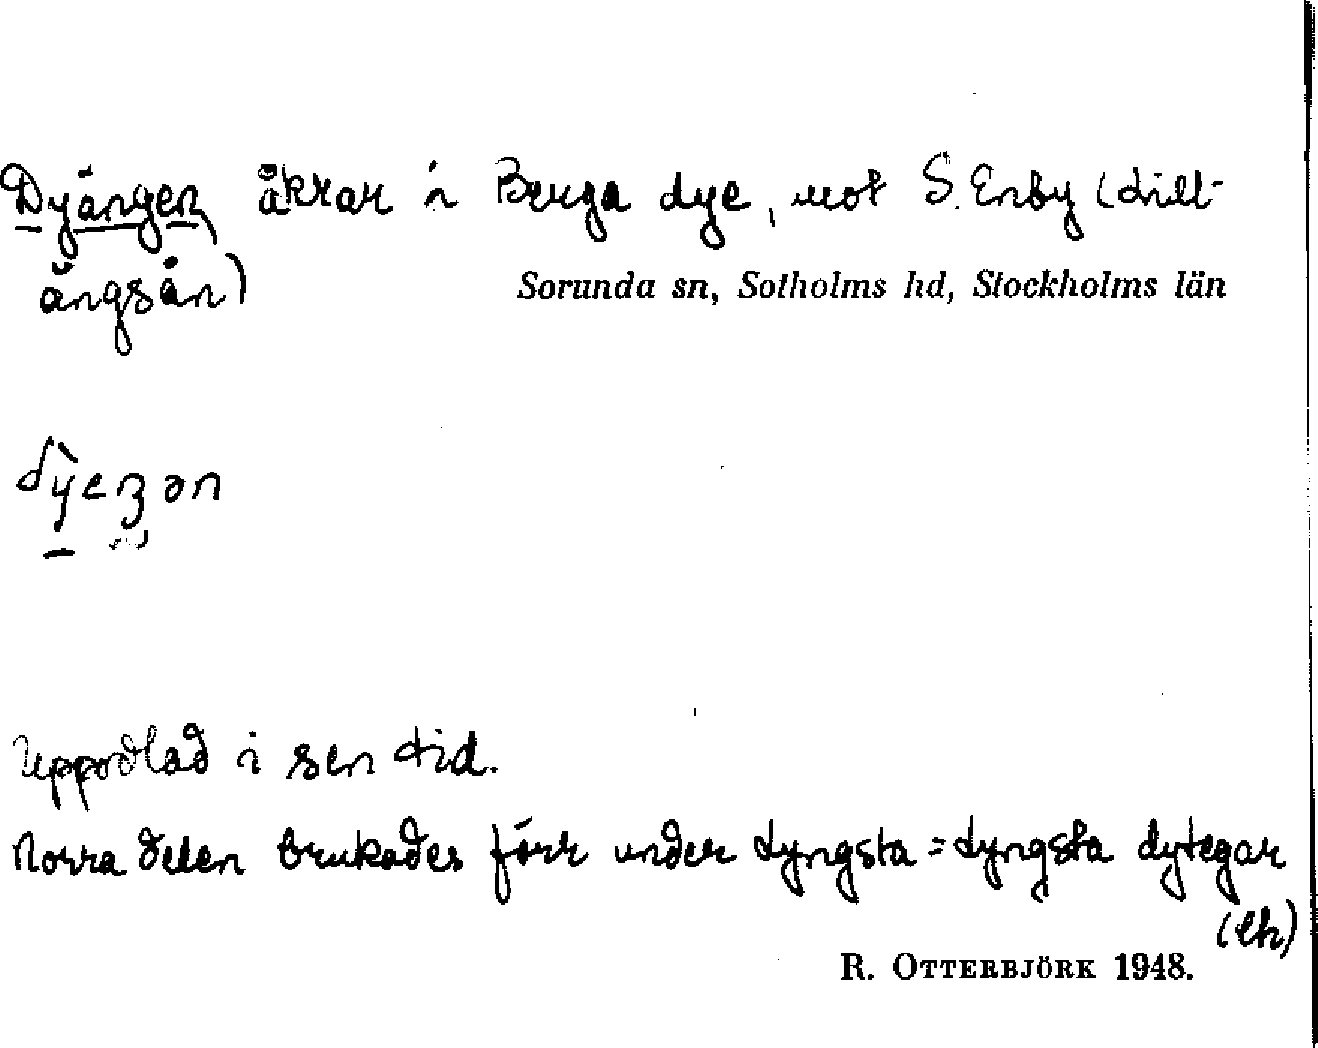 Dyängen åkrar i Berga dye, mot S. Enby (trill-
ängsån)
Sorunda sn, Sotholms hd, Stockholms län
dỳeŋən
Uppodlad i sen tid.
Norra delen brukades förr under tyngsta = tyngsta dytegar
(lh)
R. OTTERBJÖRK 1948.